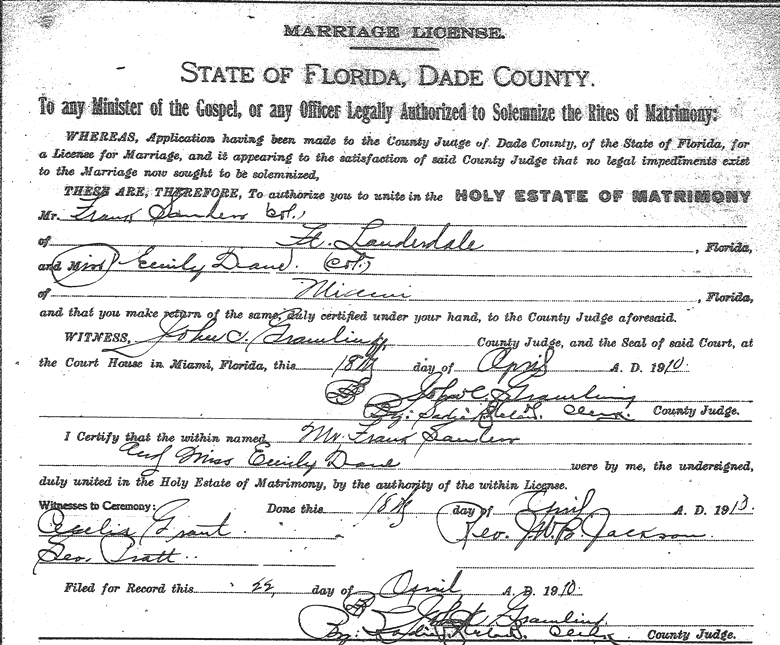 MARRIAGE LICENSE.
STATE OF FLORIDA, DADE COUNTY.
To any Minister of the Gospel, or any Officer Legally Authorized to Solemnize the Rites of Matrimony:
WHEREAS, Application having been made to the County Judge of Dade County, of the State of Florida, for
a License for Marriage, and it appearing to the satisfaction of said County Judge that no legal impediments exist
to the Marriage now sought to be solemnized,
THESE ARE, THEREFORE, To authorize you to unite in the HOLY ESTATE OF MATRIMONY
Mr. Frank Col.
of Ft. Lauderdale, Florida,
and Miss Emily Deane (Col.)
of Miami, Florida,
and that you make return of the same, duly certified under your hand, to the County Judge aforesaid.
WITNESS, John C. Gramling County Judge, and the Seal of said Court, at
the Court House in Miami, Florida, this 18th day of April A. D. 1910.
John C. Gramling
By: Clerk. County Judge.
I Certify that the within named Mr. Frank
and Miss Emily Deane were by me, the undersigned,
duly united in the Holy Estate of Matrimony, by the authority of the within License.
Witnesses to Ceremony: Done this 18th day of April A. D. 191
Grant Rev. J.W.B. Jackson.
Geo. Pratt.
Filed for Record this 22 day of April A. D. 1910
John C. Gramling,
By: Clerk County Judge.